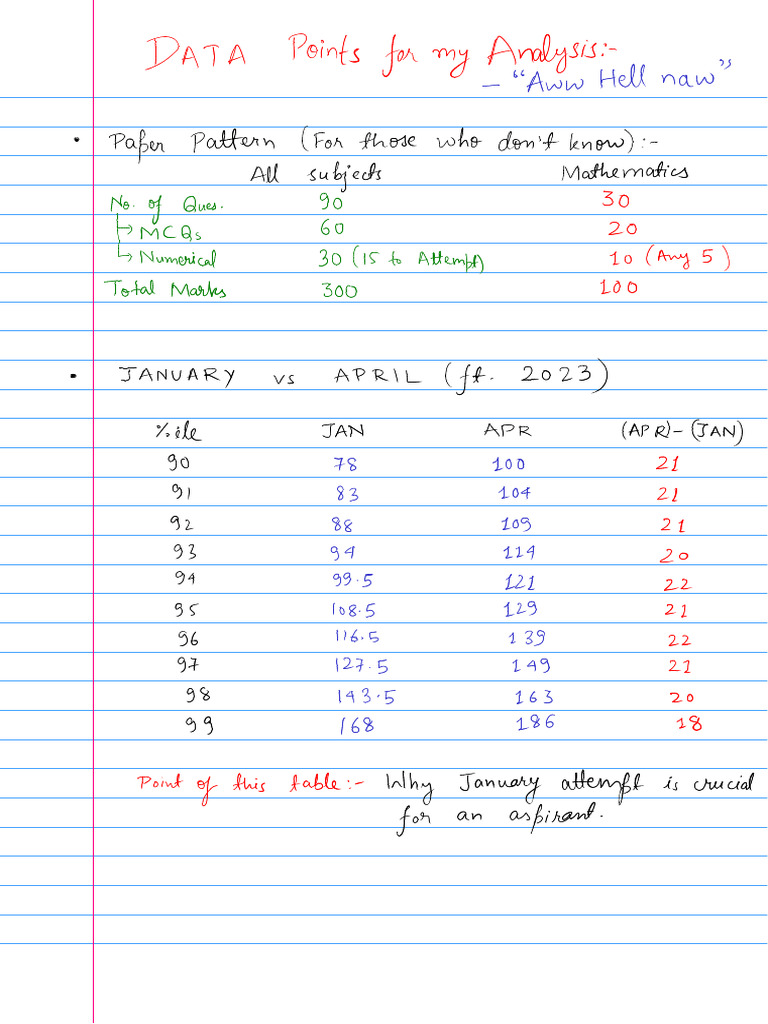 DATA Points for my Analysis:-
- "Aww Hell naw"
• Paper Pattern (For those who don't know):-
All subjects Mathematics
No. of Ques. 90 30
↳ MCQs 60 20
↳ Numerical 30 (15 to Attempt) 10 (Any 5)
Total Marks 300 100
• JANUARY vs APRIL (ft. 2023)
%ile JAN APR (APR)-(JAN)
90 78 100 21
91 83 104 21
92 88 109 21
93 94 114 20
94 99.5 121 22
95 108.5 129 21
96 116.5 139 22
97 127.5 149 21
98 143.5 163 20
99 168 186 18
Point of this table:- Why January attempt is crucial
for an aspirant.